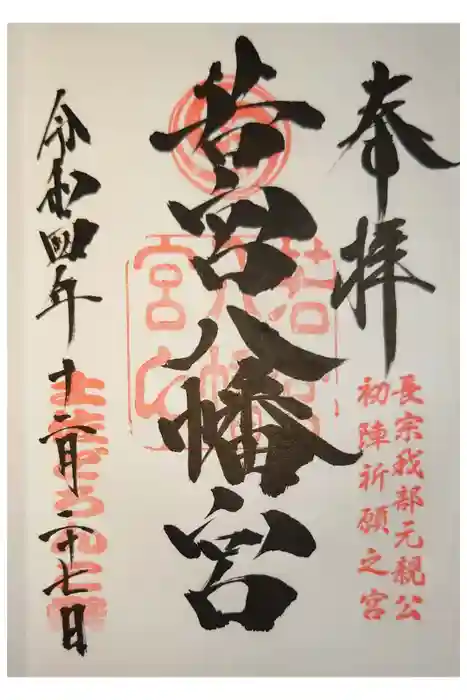 奉拝
長宗我部元親公
初陣祈願之宮
若宮八幡宮
令和四年十二月二十七日